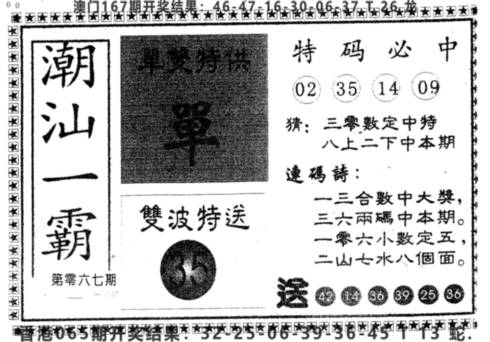 澳门167期开奖结果：46-47-16-30-06-37 T 26 龙
潮汕一霸
第零六七期
單雙特供
單
雙波特送
35
特碼必中
02 35 14 09
猜：三零數定中特
八上二下中本期
連碼詩：
一三合數中大獎，
三六兩碼中本期。
一零六小數定五，
二山七水八個面。
送 42 14 36 39 25 36
香港065期开奖结果：32-25-06-39-36-45 T 13 蛇.